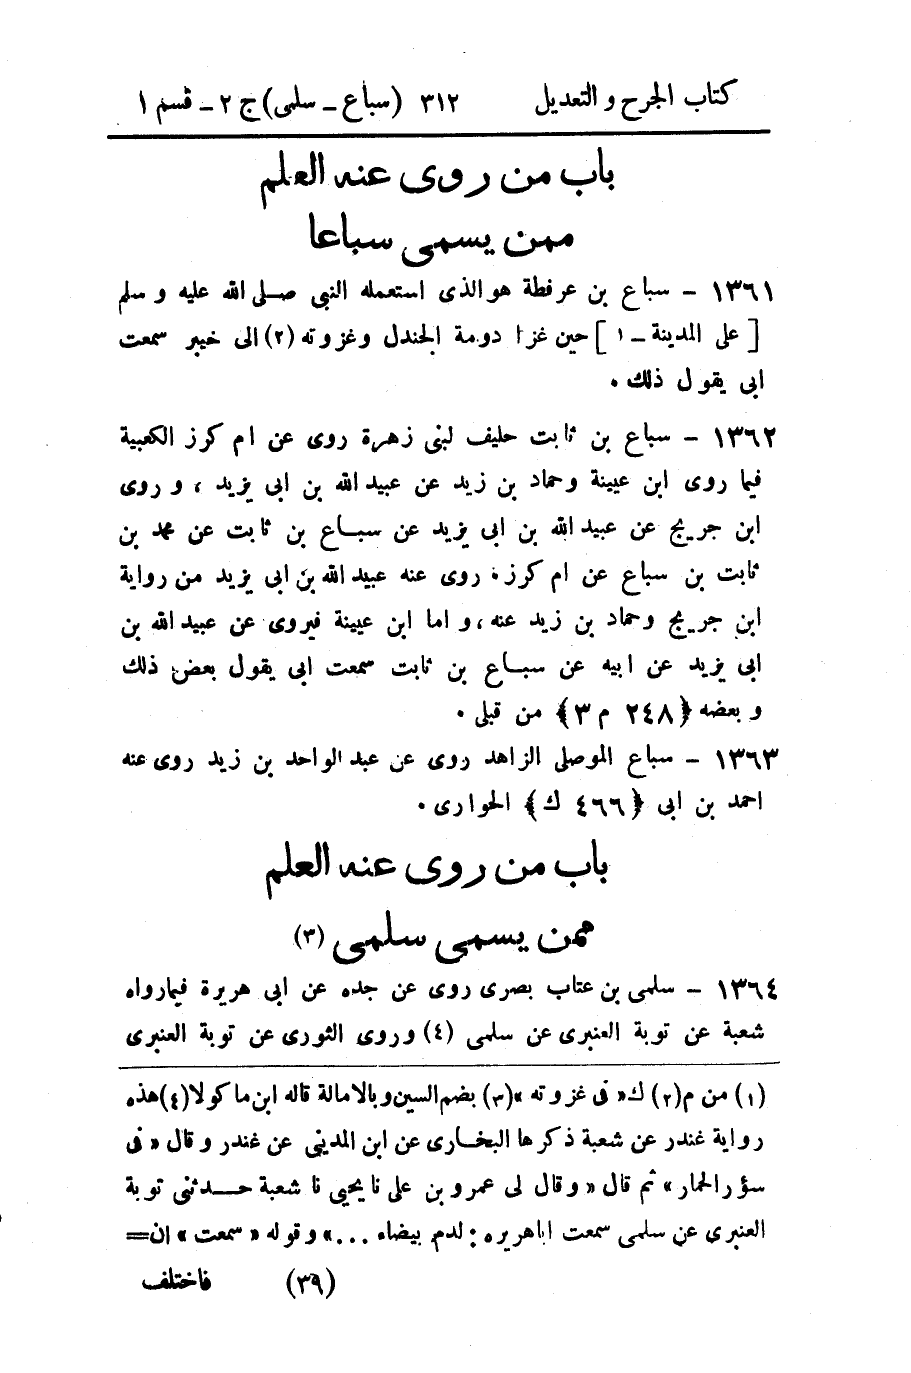 كتاب الجرح و التعديل ٣١٢ (سباع ـ سلمى) ج ٢ ـ قسم ١
باب من روى عنه العلم
ممن يسمى سباعا
١٣٦١ - سباع بن عرفطة هو الذى استعمله النبي صلى الله عليه و سلم
[على المدينة ـ ١] حين غزا دومة الجندل وغزوته (٢) الى خيبر سمعت
ابى يقول ذلك .
١٣٦٢ - سباع بن ثابت حليف لبنى زهرة روى عن ام كرز الكعبية
فيما روى ابن عيينة وحماد بن زيد عن عبيد الله بن ابى يزيد ، و روى
ابن جريج عن عبيد الله بن ابى يزيد عن سباع بن ثابت عن محمد بن
ثابت بن سباع عن ام كرز . روى عنه عبيد الله بن ابى يزيد من رواية
ابن جريج وحماد بن زيد عنه ، و اما ابن عيينة فيروى عن عبيد الله بن
ابى يزيد عن ابيه عن سباع بن ثابت سمعت ابى يقول بعض ذلك
و بعضه ﴿٢٤٨ م ٣﴾ من قبلى .
١٣٦٣ - سباع الموصلى الزاهد روى عن عبد الواحد بن زيد روى عنه
احمد بن ابى ﴿٤٦٦ ك﴾ الحوارى .
باب من روى عنه العلم
ممن يسمى سلمى (٣)
١٣٦٤ - سلمى بن عتاب بصرى روى عن جده عن ابى هريرة فيما رواه
شعبة عن توبة العنبرى عن سلمى (٤) وروى الثورى عن توبة العنبرى
(١) من م (٢) ك « فى غزوته » (٣) بضم السين وبالامالة قاله ابن ماكولا (٤) هذه
رواية غندر عن شعبة ذكرها البخارى عن ابن المدينى عن غندر و قال « فى
سؤر الحمار » ثم قال « و قال لى عمرو بن على نا يحيى نا شعبة حدثنى توبة
العنبرى عن سلمى سمعت اباهريره : لدم بيضاء ...» و قوله « سمعت » ان=
(٣٩) فاختلف